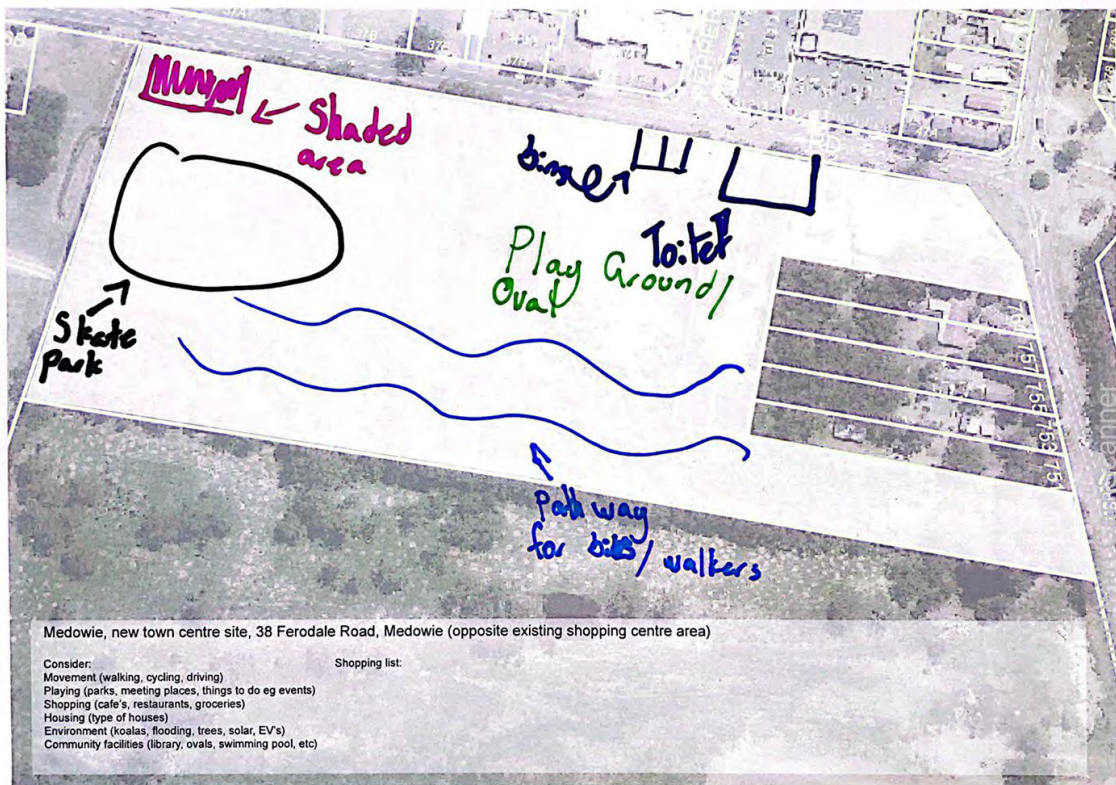 37A
37B
37E
Shaded
area
bins
Toilet
Play Ground/
Oval
Skate
park
Path way
for bikes/walkers
757
755
753
751
Medowie, new town centre site, 38 Ferodale Road, Medowie (opposite existing shopping centre area)
Consider:
Movement (walking, cycling, driving)
Playing (parks, meeting places, things to do eg events)
Shopping (cafe's, restaurants, groceries)
Housing (type of houses)
Environment (koalas, flooding, trees, solar, EV's)
Community facilities (library, ovals, swimming pool, etc)
Shopping list: